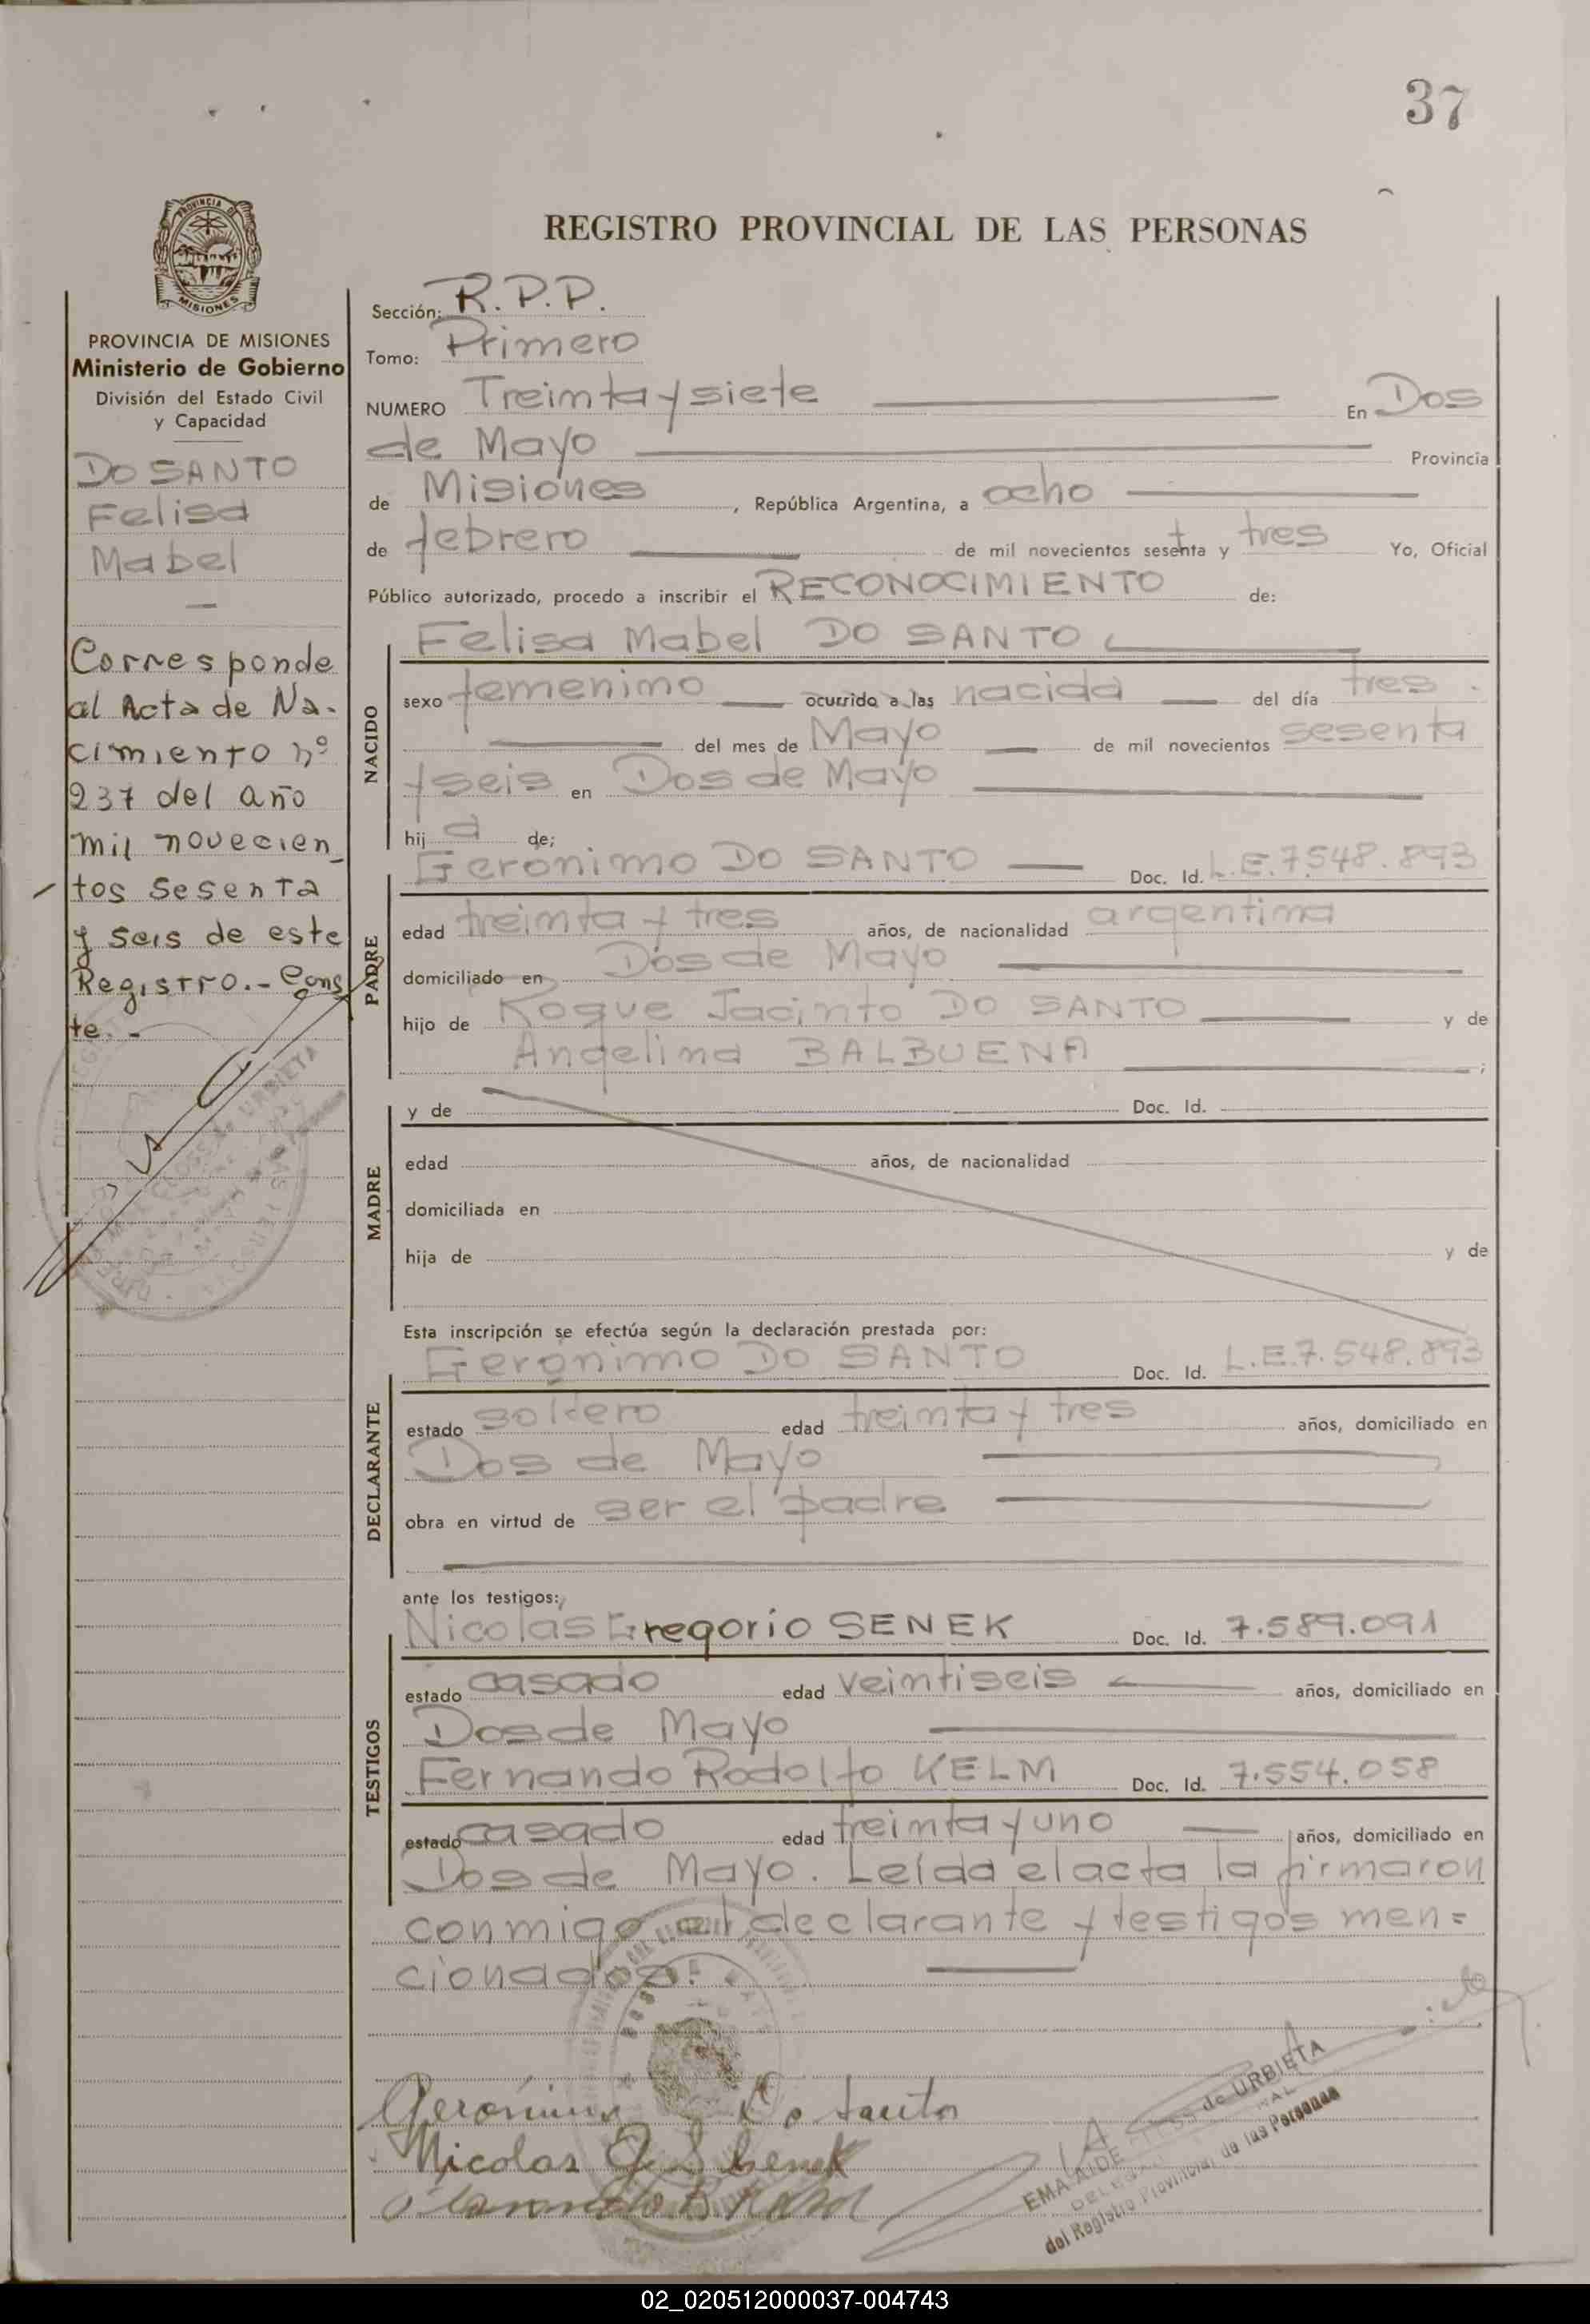 37
REGISTRO PROVINCIAL DE LAS PERSONAS
PROVINCIA DE MISIONES
Ministerio de Gobierno
División del Estado Civil
y Capacidad
DO SANTO
Felisa
Mabel
Corresponde
al Acta de Na-
cimiento nº
237 del año
mil novecien_
tos sesenta
y seis de este
Registro.- Cons
te.-
Sección: R.P.P.
Tomo: Primero
NUMERO Treinta y siete En Dos
de Mayo Provincia
de Misiones, República Argentina, a ocho
de febrero de mil novecientos sesenta y tres Yo, Oficial
Público autorizado, procedo a inscribir el RECONOCIMIENTO de:
Felisa Mabel DO SANTO
NACIDO
sexo femenino ocurrido a las nacida del día tres.
del mes de Mayo de mil novecientos sesenta
y seis en Dos de Mayo
hij a de;
Gerónimo DO SANTO Doc. Id. L.E.7.548.893
PADRE
edad treinta y tres años, de nacionalidad argentina
domiciliado en Dos de Mayo
hijo de Roque Jacinto DO SANTO y de
Angelina BALBUENA ;
MADRE
y de Doc. Id.
edad años, de nacionalidad
domiciliada en
hija de y de
Esta inscripción se efectúa según la declaración prestada por:
Gerónimo DO SANTO Doc. Id. L.E.7.548.893
DECLARANTE
estado soltero edad treinta y tres años, domiciliado en
Dos de Mayo
obra en virtud de ser el padre
ante los testigos:
Nicolas Gregorio SENEK Doc. Id. 7.589.091
TESTIGOS
estado casado edad veintiseis años, domiciliado en
Dos de Mayo
Fernando Rodolfo KELM Doc. Id. 7.554.058
estado casado edad treinta y uno años, domiciliado en
Dos de Mayo. Leída el acta la firmaron
conmigo el declarante y testigos men=
cionados.
Gerónimo Do Santo
Nicolas G. Senek
EMA AIDE de URBIETA
del Registro Provincial de las Personas
02_020512000037-004743